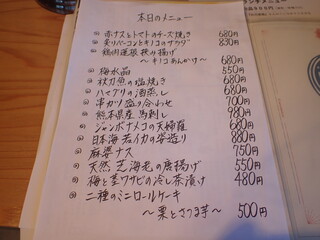 本日のメニュー
赤ナスとトマトのチーズ焼き 680円
炙りベーコンとキノコのサラダ 830円
鶏肉蓮根挟み揚げ
〜キノコあんかけ〜 680円
梅水晶 550円
秋刀魚の塩焼き 680円
ハマグリの酒蒸し 680円
串カツ盛り合わせ 700円
熊本県産馬刺し 980円
ジャンボナメコの天婦羅 680円
日本海若イカの姿造り 880円
麻婆ナス 750円
天然芝海老の唐揚げ 550円
梅と茎ワサビの冷し茶漬け 480円
二種のミニロールケーキ
〜栗とさつま芋〜 500円